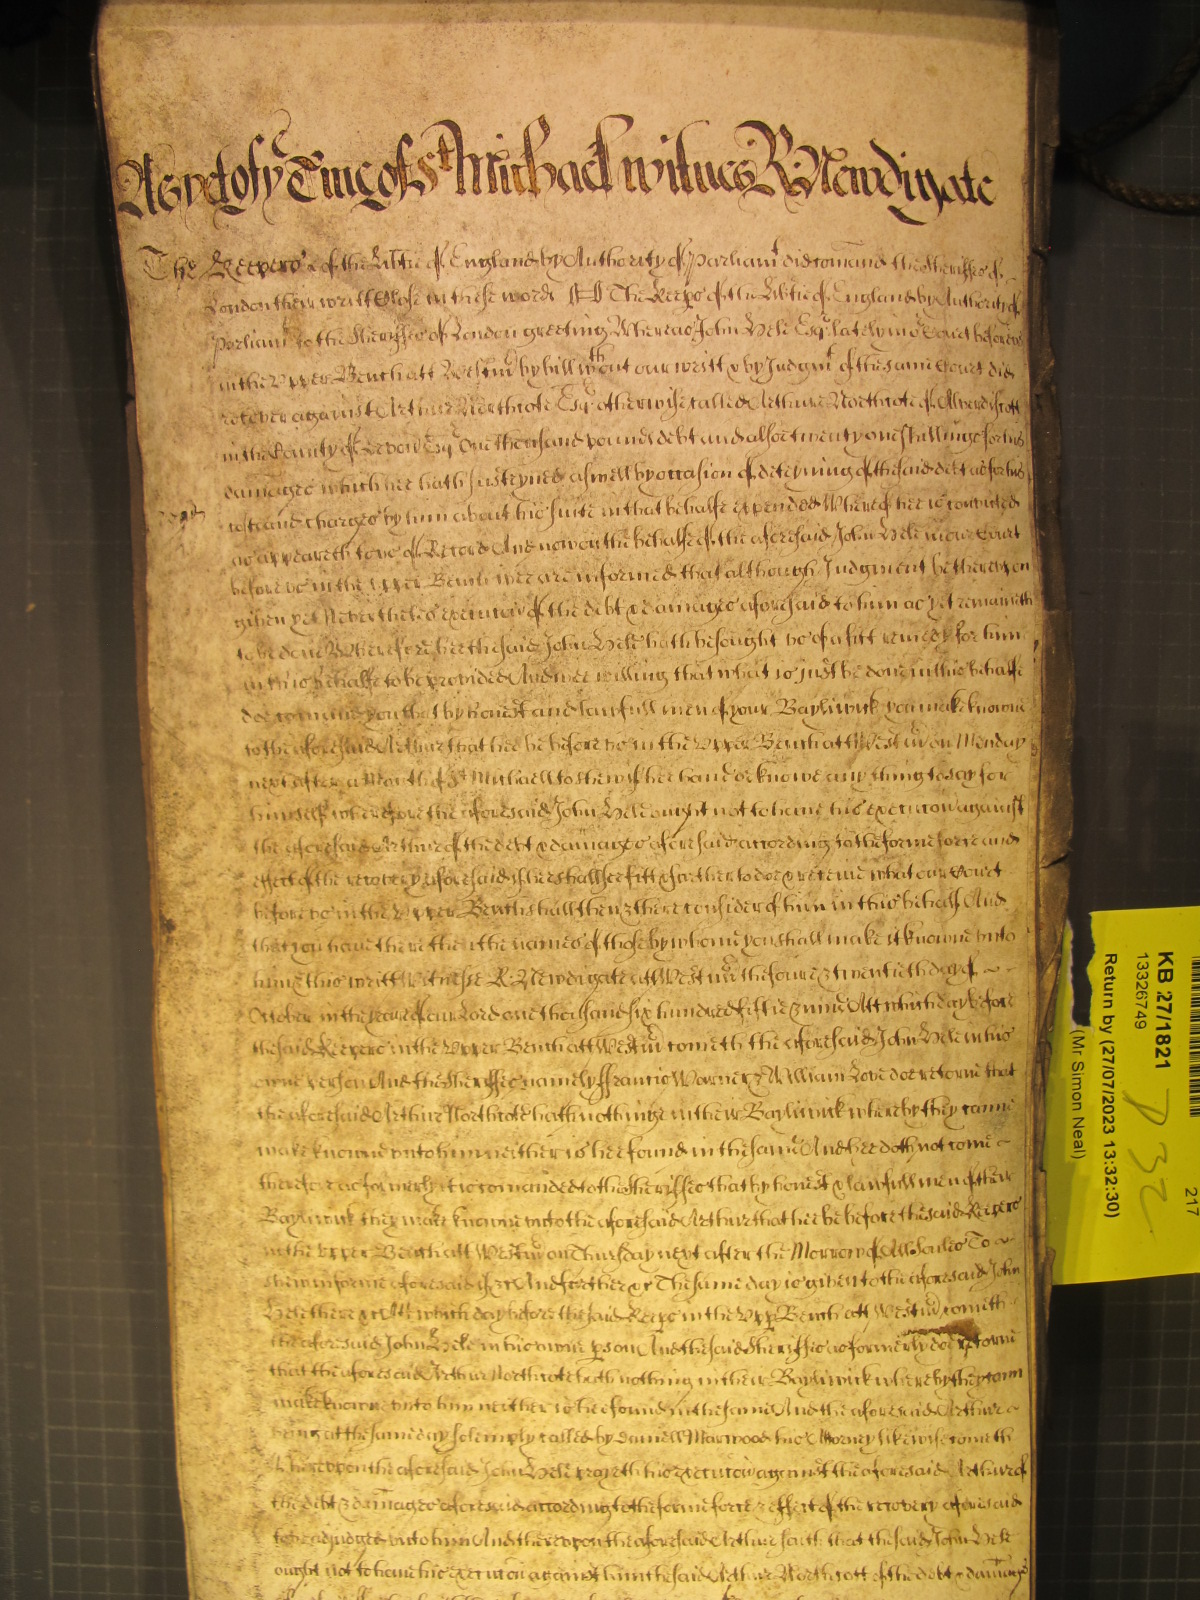 As yet of ye Time of St Michael witnes R: Newdigate
The Keepers &c of the Libtie of England by Authority of Parliamt did comand the Sheriffes of
London their writt Close in these words ss The Keeps of the Libtie of England by Authority of
Parliamt to the Sheriffes of London greeting Whereas John Hele Esqr lately in or Court before us
in the Upper Bench att Westmr by bill wthout our writt & by Judgmt of the same Court did
recover against Arthur Northcote Esqr otherwise called Arthure Northcote of
in the County of Devon Esqr One thousand pounds debt and alsoe twenty one shillings for his
damages which hee hath susteyned aswell by occasion of deteyning of the said debt as for his
costs and charges by him about his suite in that behalfe expended Whereof hee is convicted
as appeareth to us of Record And now on the behalfe of the aforesaid John Hele in our Court
before us in the Upper Bench wee are informed that although Judgment be thereupon
given yet Neverthelesse execucon of the debt & damages aforesaid to him as yet remaineth
to be don Wherefore hee the said John Hele hath besought us of a fitt remedy for him
in this behalfe to be provided And wee willing that what is just be done in this behalfe
doe comand you that by honest and lawfull men of your Bayliwick you make knowne
to the aforesaid Arthur that hee be before us in the Upper Bench att Westmr on Monday
next after a Month of St Michaell to shew if hee have or knowe any thing to say for
himself wherefore the aforesaid John Hele ought not to have his execucon against
the aforesaid Arthur of the debt & damages aforesaid according to the forme force and
effect of the recovery aforesaid if hee shall see fitt & further to doe & receive what our Court
before us in the Upper Bench shall then & there consider of him in this behalf And
that you have there then the names of those by whome you shall make it knowne unto
him & this writt Witnesse R: Newdigate att Westmr the foure & twentieth day of
October in the yeare of our Lord one thousand six hundred fiftie & nine Att which day before
the said Keepers in the Upper Bench att Westmr cometh the aforesaid John Hele in his
owne person And the Sheriffes namely Francis Warner & William Love doe retorne that
the aforesaid Arthur Northcote hath nothinge in their Bayliwick whereby they cann
make knowne unto him neither is hee found in the same And hee doth not come
therefore as formerly it is comanded to the Sheriffes that by honest & lawfull men of their
Bayliwick they make knowne unto the aforesaid Arthur that hee be before the said Keepers
in the Upper Bench att Westmr on Thursday next after the Morrow of All Soules To
shew in forme aforesaid if &c And further &c The same day is given to the aforesaid John
Hele there &c Att which day before the said Keeps in the Uppr Bench att Westmr cometh
the aforesaid John Hele in his owne pson And the said Sheriffes as formerly doe retorne
that the aforesaid Arthur Northcote hath nothing in their Bayliwick whereby they cann
make knowne unto him neither is hee found in the same And the aforesaid Arthure
being att the same day solemnly called by Daniell Marwood his Attorney likewise cometh
Whereupon the aforesaid John Hele prayeth his execucon against the aforesaid Arthur of
the debt & damages aforesaid according to the forme force & effect of the recovery aforesaid
to be adjudged unto him And thereupon the aforesaid Arthur saith that the said John Hele
ought not to have his execucon against him the said Arthur Northcott of the debt & damages
KB 27/1821
13326749
Return by (27/07/2023 13:32:30)
(Mr Simon Neal)
217